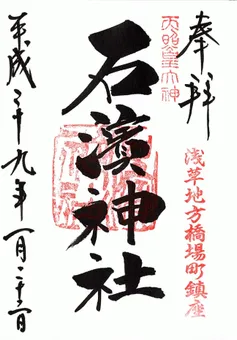 奉拝
天照皇大神
浅草地方橋場町鎮座
石濱神社
平成二十九年一月二十三日